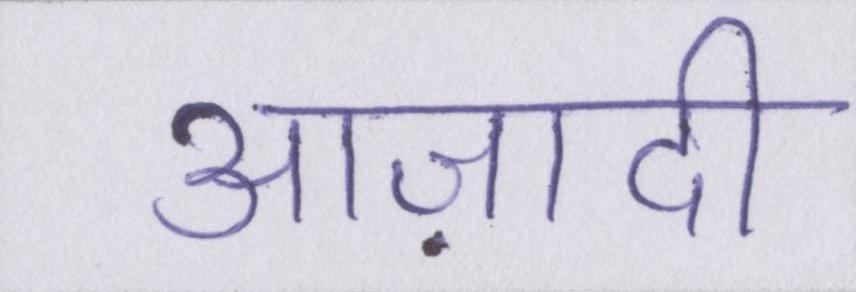 आज़ादी